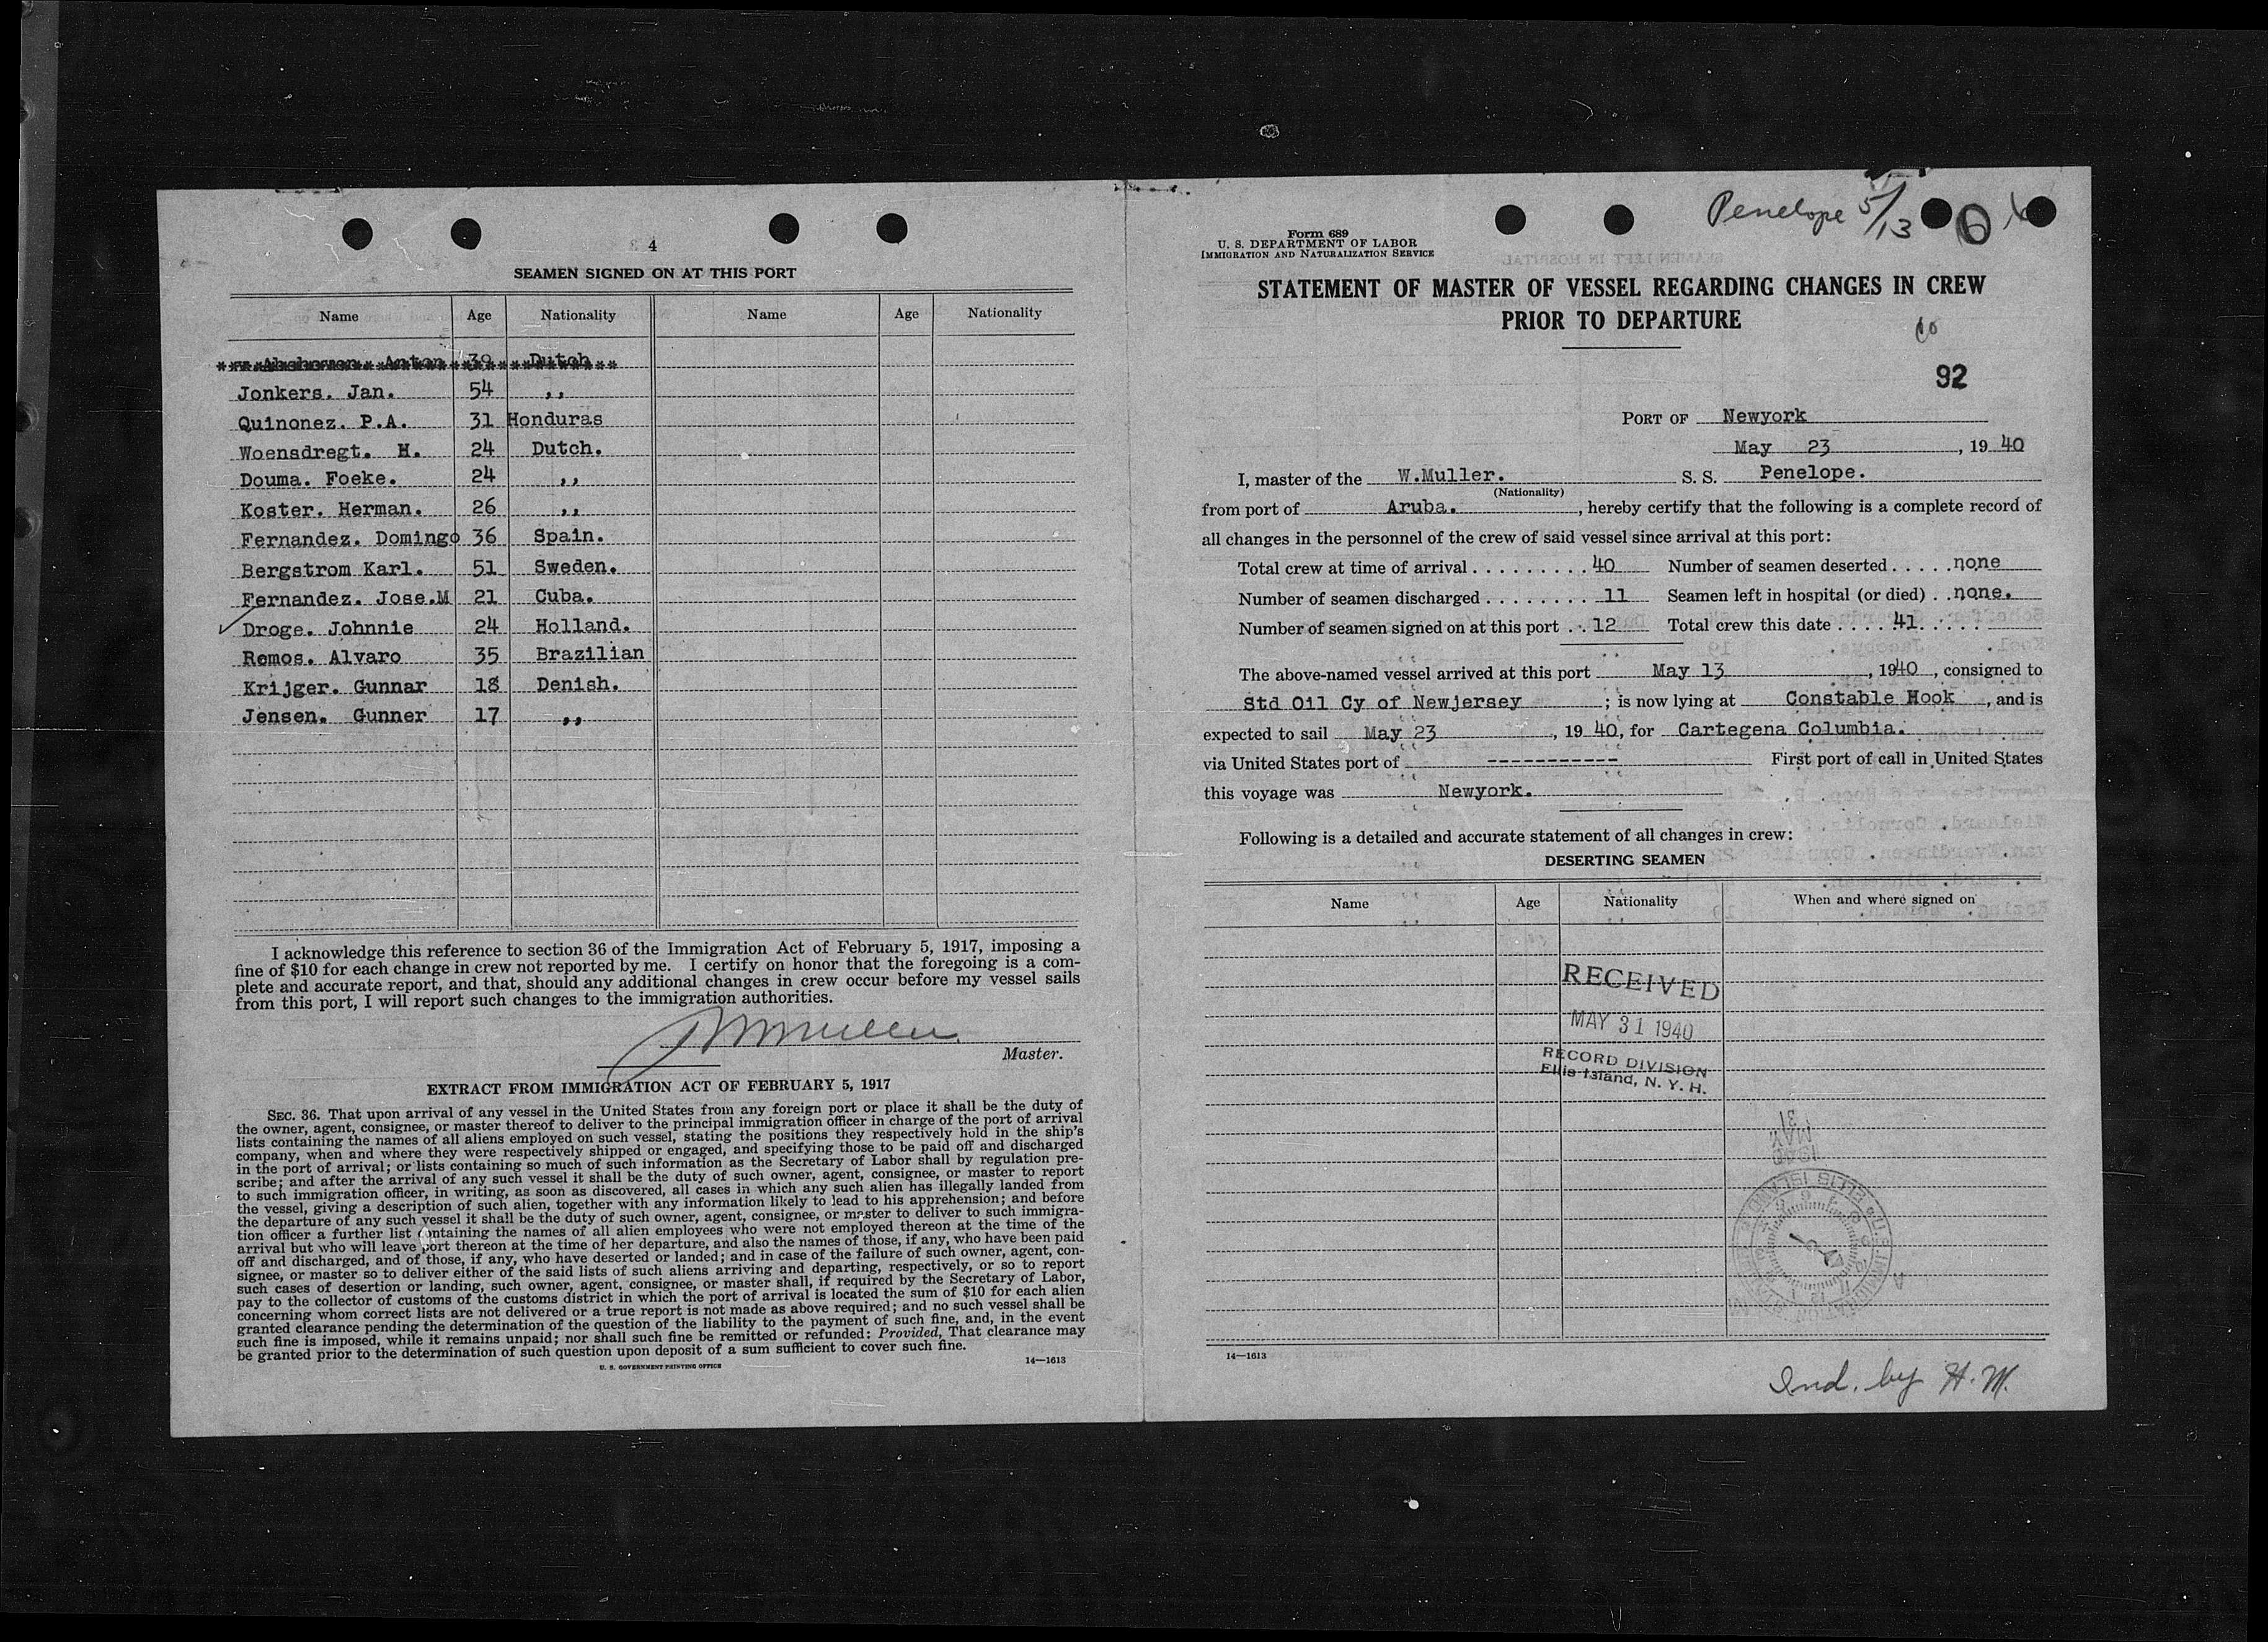 4
SEAMEN SIGNED ON AT THIS PORT
Name Age Nationality Name Age Nationality
Anton 39 Dutch
Jonkers. Jan. 54 ,,
Quinonez. P.A. 31 Honduras
Woensdregt. H. 24 Dutch.
Douma. Foeke. 24 ,,
Koster. Herman. 26 ,,
Fernandez. Domingo 36 Spain.
Bergstrom Karl. 51 Sweden.
Fernandez. Jose.M 21 Cuba.
Droge. Johnnie 24 Holland.
Remos. Alvaro 35 Brazilian
Krijger. Gunnar 18 Denish.
Jensen. Gunner 17 ,,
I acknowledge this reference to section 36 of the Immigration Act of February 5, 1917, imposing a
fine of $10 for each change in crew not reported by me. I certify on honor that the foregoing is a com-
plete and accurate report, and that, should any additional changes in crew occur before my vessel sails
from this port, I will report such changes to the immigration authorities.
WMuller
Master.
EXTRACT FROM IMMIGRATION ACT OF FEBRUARY 5, 1917
SEC. 36. That upon arrival of any vessel in the United States from any foreign port or place it shall be the duty of
the owner, agent, consignee, or master thereof to deliver to the principal immigration officer in charge of the port of arrival
lists containing the names of all aliens employed on such vessel, stating the positions they respectively hold in the ship's
company, when and where they were respectively shipped or engaged, and specifying those to be paid off and discharged
in the port of arrival; or lists containing so much of such information as the Secretary of Labor shall by regulation pre-
scribe; and after the arrival of any such vessel it shall be the duty of such owner, agent, consignee, or master to report
to such immigration officer, in writing, as soon as discovered, all cases in which any such alien has illegally landed from
the vessel, giving a description of such alien, together with any information likely to lead to his apprehension; and before
the departure of any such vessel it shall be the duty of such owner, agent, consignee, or master to deliver to such immigra-
tion officer a further list containing the names of all alien employees who were not employed thereon at the time of the
arrival but who will leave port thereon at the time of her departure, and also the names of those, if any, who have been paid
off and discharged, and of those, if any, who have deserted or landed; and in case of the failure of such owner, agent, con-
signee, or master so to deliver either of the said lists of such aliens arriving and departing, respectively, or so to report
such cases of desertion or landing, such owner, agent, consignee, or master shall, if required by the Secretary of Labor,
pay to the collector of customs of the customs district in which the port of arrival is located the sum of $10 for each alien
concerning whom correct lists are not delivered or a true report is not made as above required; and no such vessel shall be
granted clearance pending the determination of the question of the liability to the payment of such fine, and, in the event
such fine is imposed, while it remains unpaid; nor shall such fine be remitted or refunded: Provided, That clearance may
be granted prior to the determination of such question upon deposit of a sum sufficient to cover such fine.
U. S. GOVERNMENT PRINTING OFFICE 14—1613
Penelope 5/13
Form 689
U. S. DEPARTMENT OF LABOR
IMMIGRATION AND NATURALIZATION SERVICE
STATEMENT OF MASTER OF VESSEL REGARDING CHANGES IN CREW
PRIOR TO DEPARTURE
92
PORT OF Newyork
May 23, 19 40
I, master of the W.Muller. S. S. Penelope.
(Nationality)
from port of Aruba. , hereby certify that the following is a complete record of
all changes in the personnel of the crew of said vessel since arrival at this port:
Total crew at time of arrival . . . . . . . . . 40 Number of seamen deserted . . . . . none
Number of seamen discharged . . . . . . . . 11 Seamen left in hospital (or died) . . none.
Number of seamen signed on at this port . . 12 Total crew this date . . . . 41. . . . .
The above-named vessel arrived at this port May 13, 1940, consigned to
Std Oil Cy of Newjersey ; is now lying at Constable Hook, and is
expected to sail May 23, 19 40, for Cartegena Columbia.
via United States port of ----------- First port of call in United States
this voyage was Newyork.
Following is a detailed and accurate statement of all changes in crew:
DESERTING SEAMEN
Name Age Nationality When and where signed on
RECEIVED
MAY 31 1940
RECORD DIVISION
Ellis Island, N. Y. H.
14—1613
Ind. by H. M.